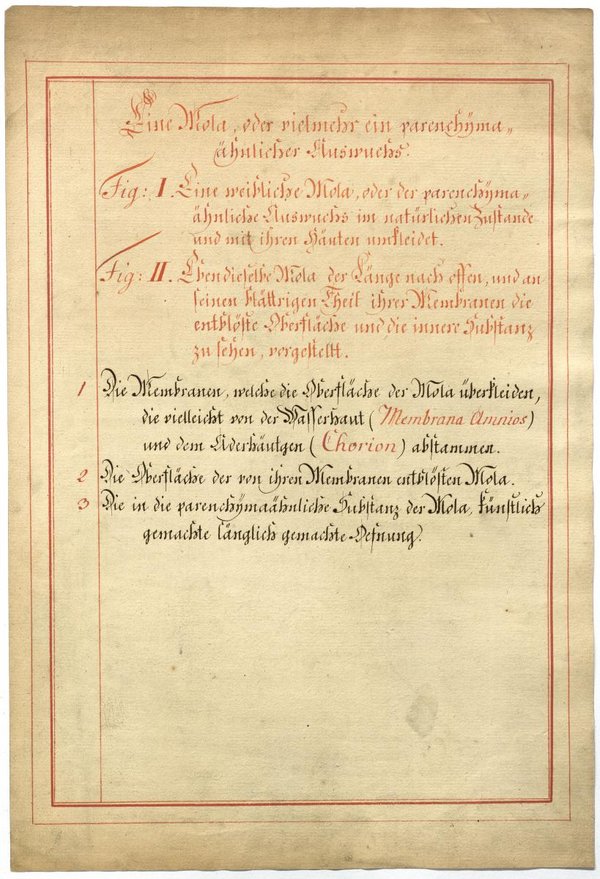 Eine Mola, oder vielmehr ein parenchyma„
ähnlicher Auswuchs.
Fig: I. Eine weibliche Mola, oder der parenchyma„
ähnliche Auswuchs im natürlichen Zustande
und mit ihren Häuten umkleidet.
Fig: II. Ebendieselbe Mola der Länge nach offen, und an
seinen blättrigen Theil ihrer Membranen die
entblöste Oberfläche und die innere Substanz
zu sehen, vorgestellt.
1 Die Membranen, welche die Oberfläche der Mola überkleiden,
die vielleicht von der Wasserhaut (Membrana Amnios)
und dem Aderhäutgen (Chorion) abstammen.
2 Die Oberfläche der von ihren Membranen entblösten Mola.
3 Die in die parenchymaähnliche Substanz der Mola, künstlich
gemachte länglich gemachte Oefnung.